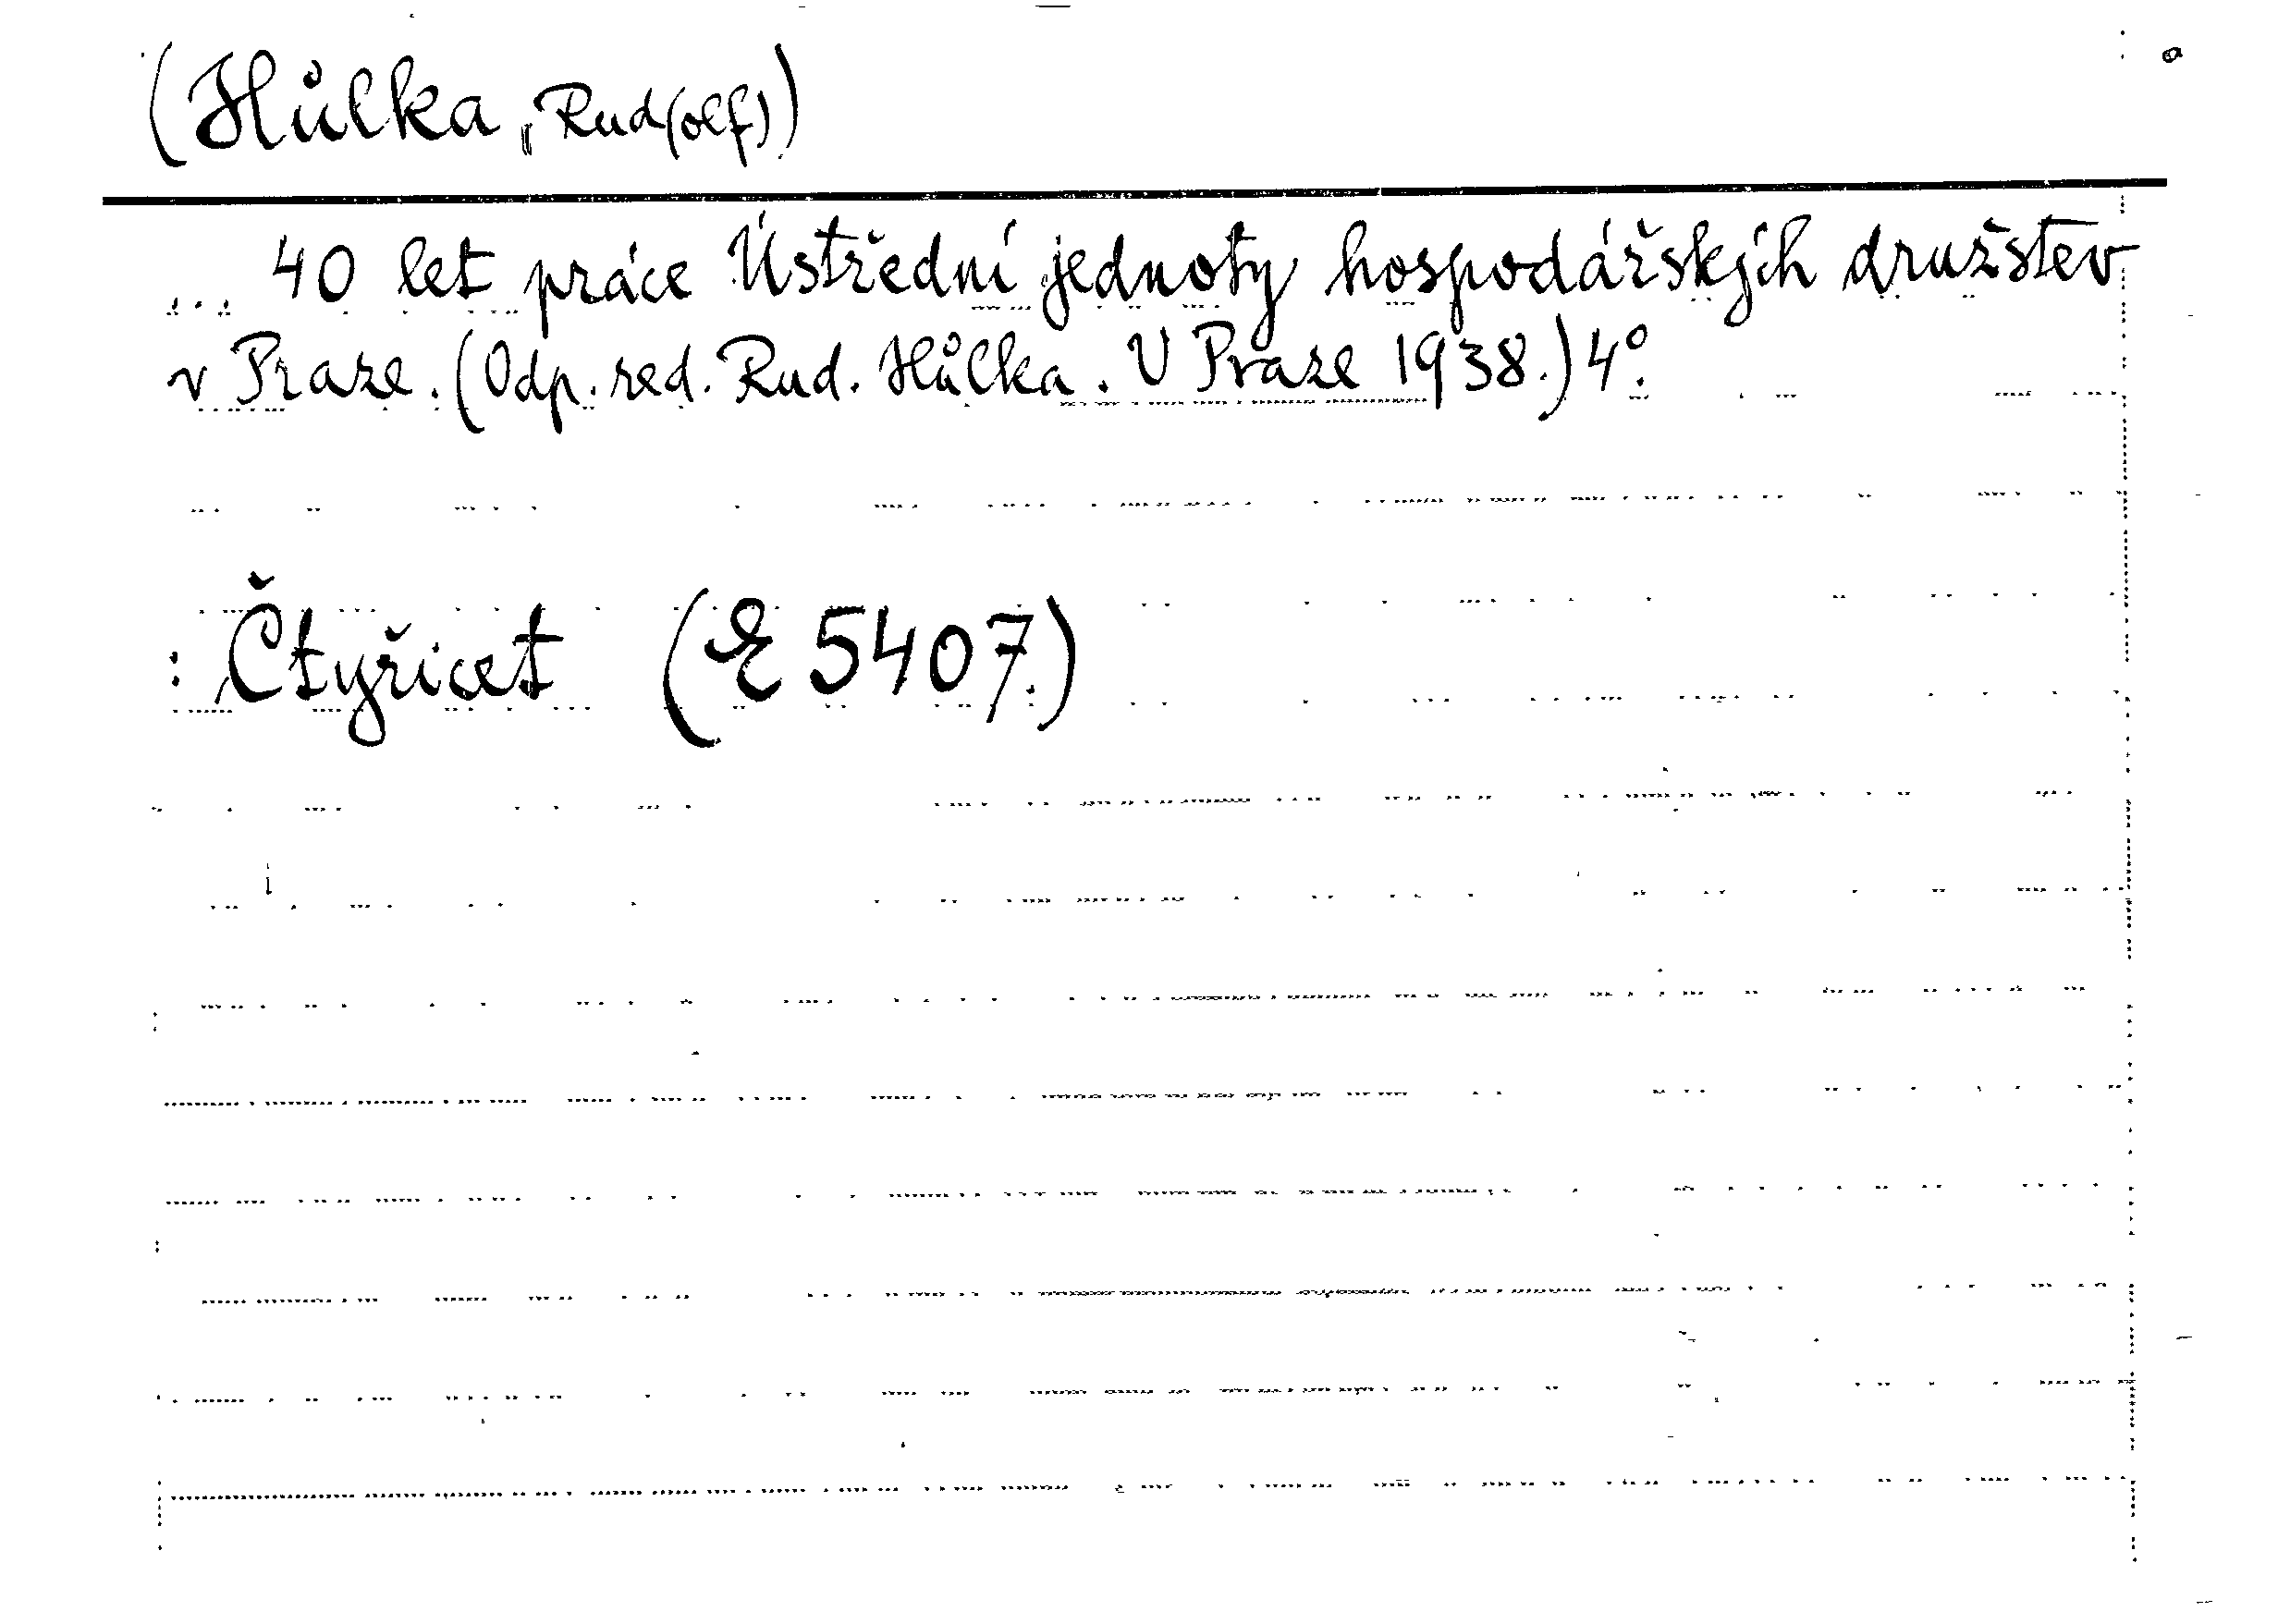 (Hůlka, Rud(olf))
... 40 let práce Ústřední jednoty hospodářských družstev
v Praze. (Odp. red. Rud. Hůlka. V Praze 1938.) 4°.
: Čtyřicet (E 5407.)